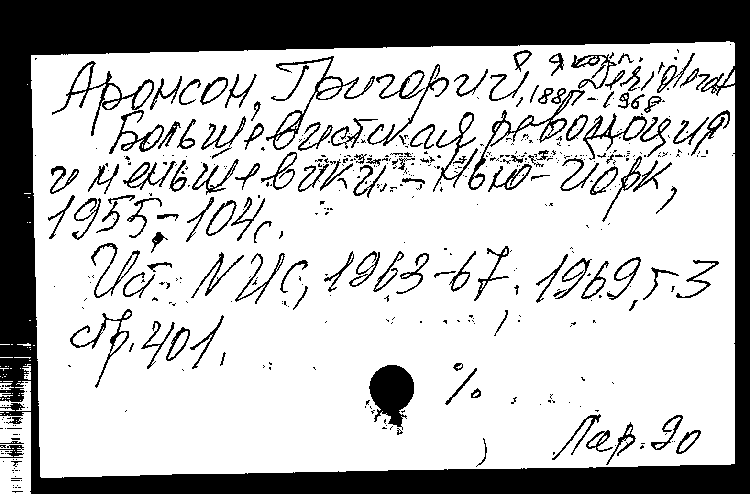 Аронсон, Григорий, Desiderat
1887-1968
Большевистская революция
и меньшевики. - Нью-Йорк,
1955, - 104 с.
Ист. NUC, 1963-67, 1969, т. 3
стр. 401.
%
Пар. 90